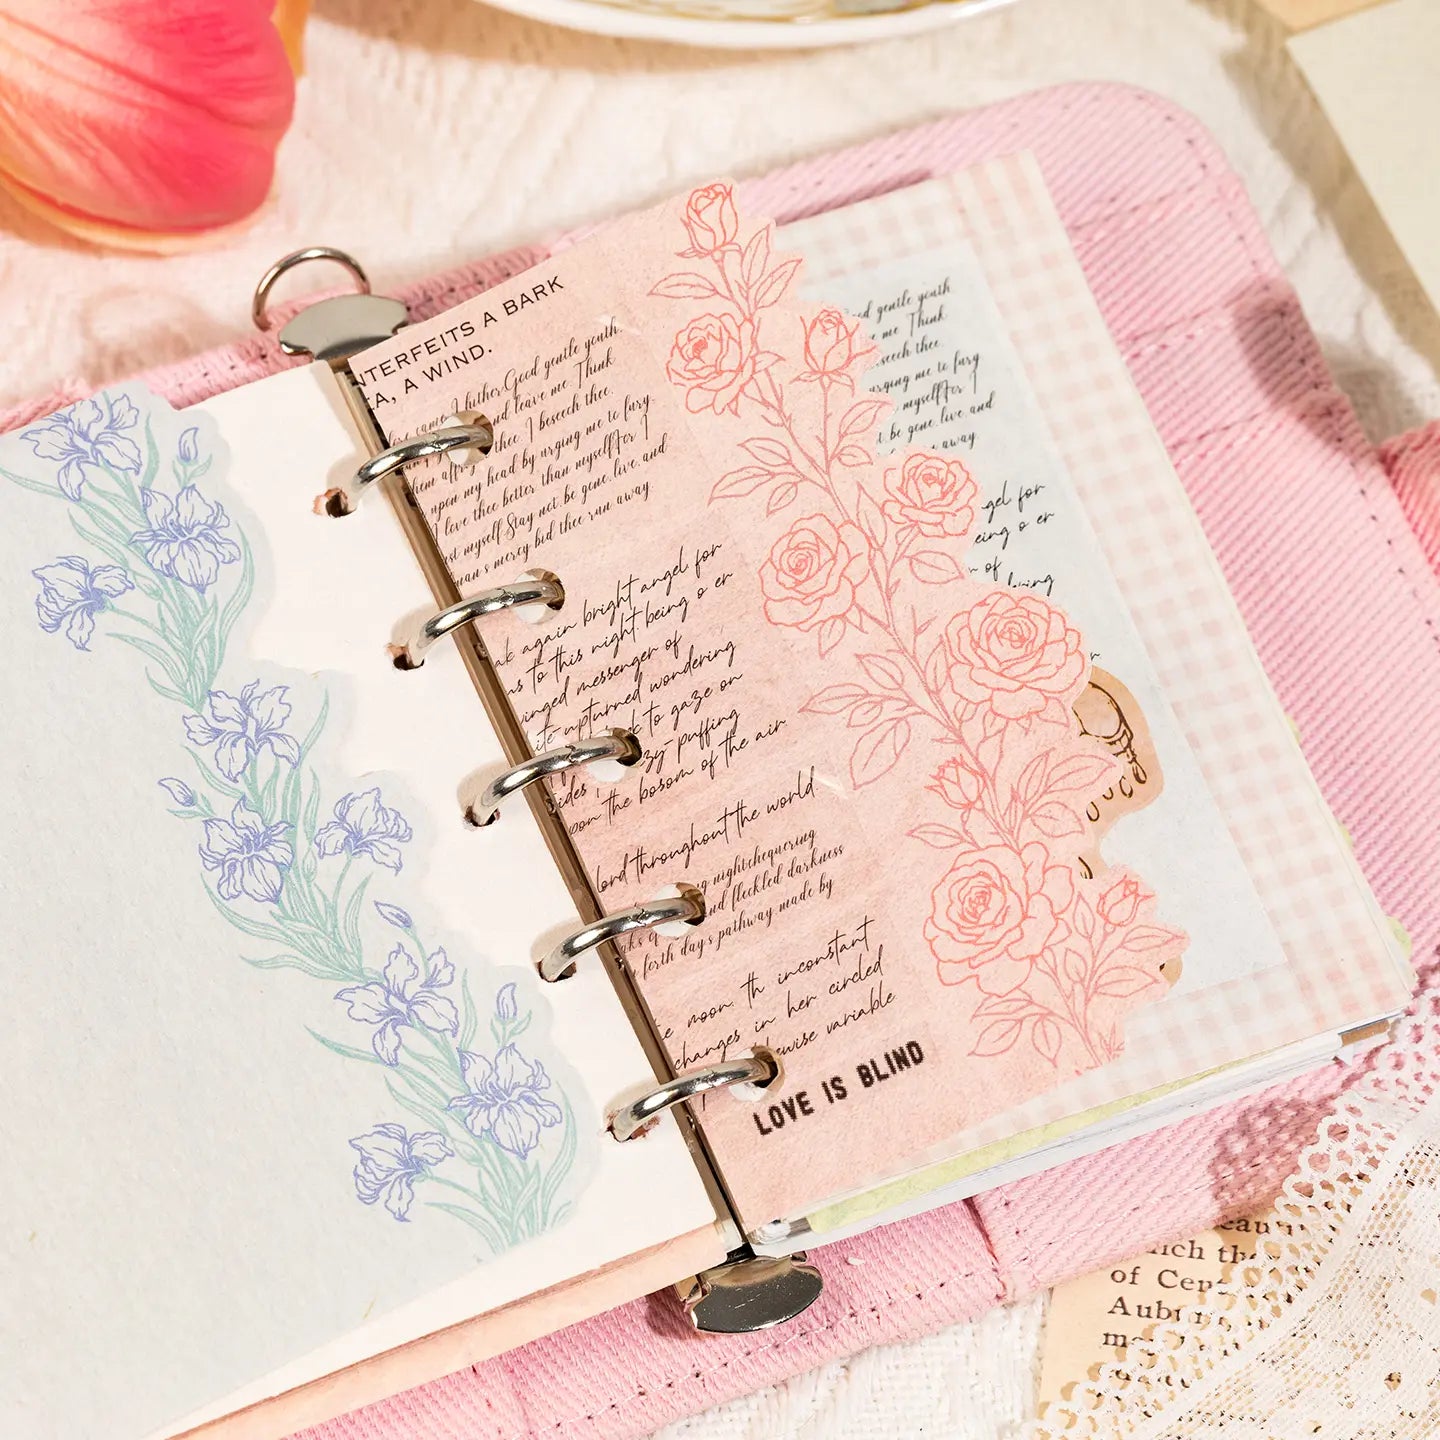 NTERFEITS A BARK
EA, A WIND.
came hither Good gentle youth
and leave me. Think
thee. I beseech thee.
upon my head by urging me to fury.
I love thee better than myself For I
myself Stay not be gone. live. and
man's mercy bid thee run away
ak again bright angel for
to this night being o er
winged messenger of
upturned wondering
ck to gaze on
zy-puffing
pon the bosom of the air
Lord throughout the world
ng night chequering
and fleckled darkness
forth day's pathway made by
e moon. th inconstant
changes in her circled
kewise variable
LOVE IS BLIND
od gentle youth
e me. Think
beseech thee.
urging me to fury
myself For I
t be gone. live. and
n away
gel for
eing o er
of
of Cen
Aubu